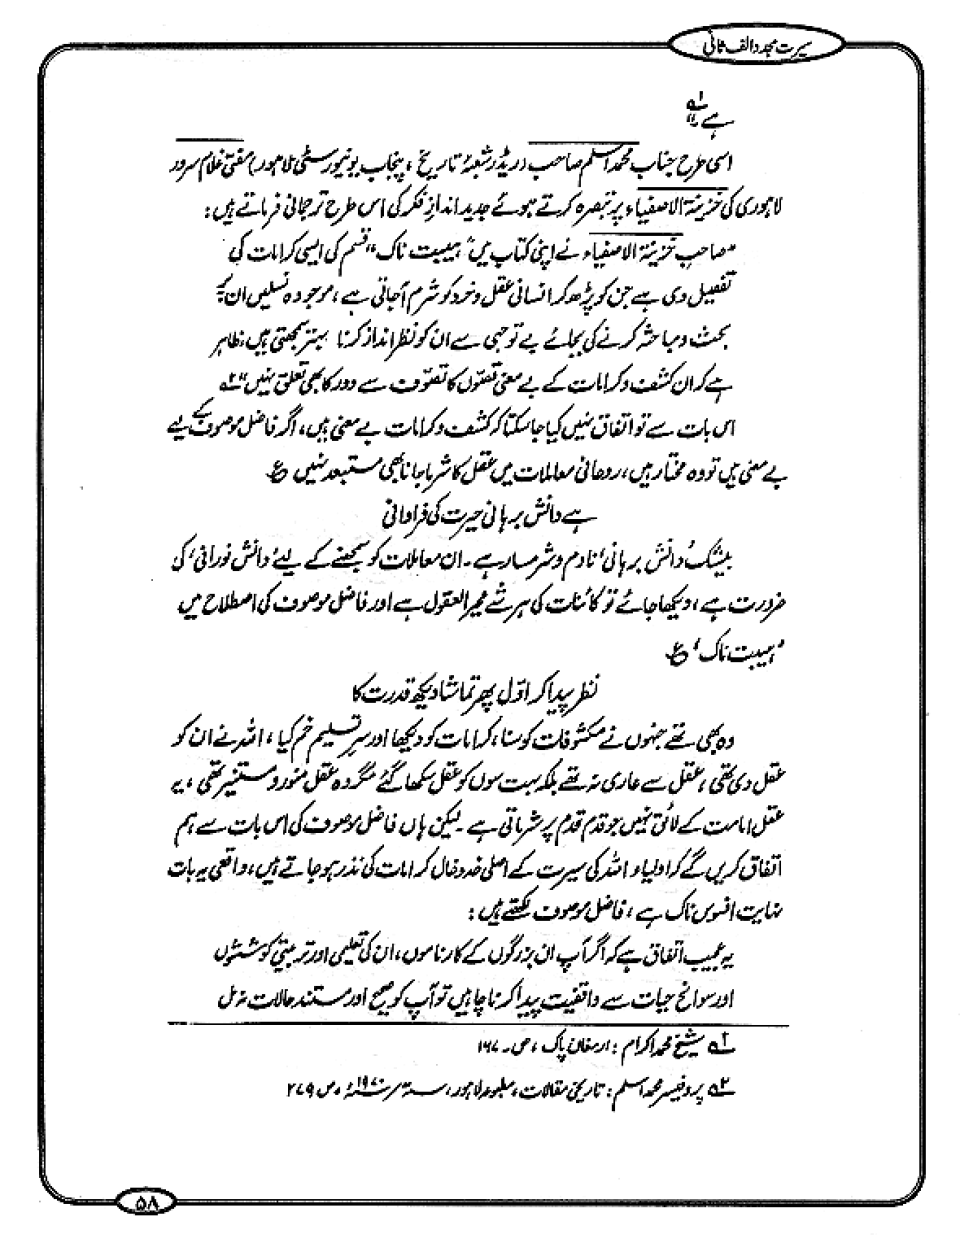 سیرت مجدد الف ثانی
ہے"۱؎
اسی طرح جناب محمد اسلم صاحب (ریڈر شعبۂ تاریخ، پنجاب یونیورسٹی لاہور) مفتی غلام سرور
لاہوری کی خزینۃ الاصفیاء پر تبصرہ کرتے ہوئے جدید اندازِ فکر کی اس طرح ترجمانی فرماتے ہیں:
"صاحبِ خزینۃ الاصفیاء نے اپنی کتاب میں "ہیبت ناک" قسم کی ایسی کرامات کی
تفصیل دی ہے جن کو پڑھ کر انسانی عقل و خرد کو شرم آ جاتی ہے، موجودہ نسلیں ان پر
بحث و مباحثہ کرنے کی بجائے بے توجہی سے ان کو نظر انداز کرنا بہتر سمجھتی ہیں، ظاہر
ہے کہ ان کشف و کرامات کے بے معنی قصّوں کا تصوّف سے دور کا بھی تعلق نہیں"۲؎
اس بات سے تو اتفاق نہیں کیا جا سکتا کہ کشف و کرامات بے معنی ہیں، اگر فاضل موصوف کے لیے
بے معنی ہیں تو وہ مختار ہیں، روحانی معاملات میں عقل کا شرما جانا بھی مستبعد نہیں ؏
ہے دانشِ برہانی حیرت کی فراوانی
بیشک 'دانش برہانی' نادم و شرمسار ہے۔ ان معاملات کو سمجھنے کے لیے 'دانشِ نورانی' کی
ضرورت ہے، دیکھا جائے تو کائنات کی ہر شے محیر العقول ہے اور فاضل موصوف کی اصطلاح میں
'ہیبت ناک' ؏
نظر پیدا کر اوّل پھر تماشا دیکھ قدرت کا
وہ بھی تھے جنہوں نے مکشوفات کو سنا، کرامات کو دیکھا اور سرِ تسلیم خم کیا، اللہ نے ان کو
عقل دی تھی، عقل سے عاری نہ تھے بلکہ بہت سوں کو عقل سکھا گئے مگر وہ عقل منور و مستنیر تھی، یہ
عقل امامت کے لائق نہیں جو قدم قدم پر شرماتی ہے۔ لیکن ہاں فاضل موصوف کی اس بات سے ہم
اتفاق کریں گے کہ اولیاء اللہ کی سیرت کے اصلی خدوخال کرامات کی نذر ہو جاتے ہیں، واقعی یہ بات
نہایت افسوس ناک ہے، فاضل موصوف لکھتے ہیں:
یہ عجیب اتفاق ہے کہ اگر آپ ان بزرگوں کے کارناموں، ان کی تعلیمی اور تربیتی کوششوں
اور سوانح حیات سے واقفیت پیدا کرنا چاہیں تو آپ کو صحیح اور مستند حالات نہ مل
۱؎ شیخ محمد اکرام: ارمغان پاک، ص۔ ۱۶۷
۲؎ پروفیسر محمد اسلم: تاریخی مقالات، مطبوعہ لاہور، سنہ ۱۹۷۰ء، ص ۲۷۹
۵۸